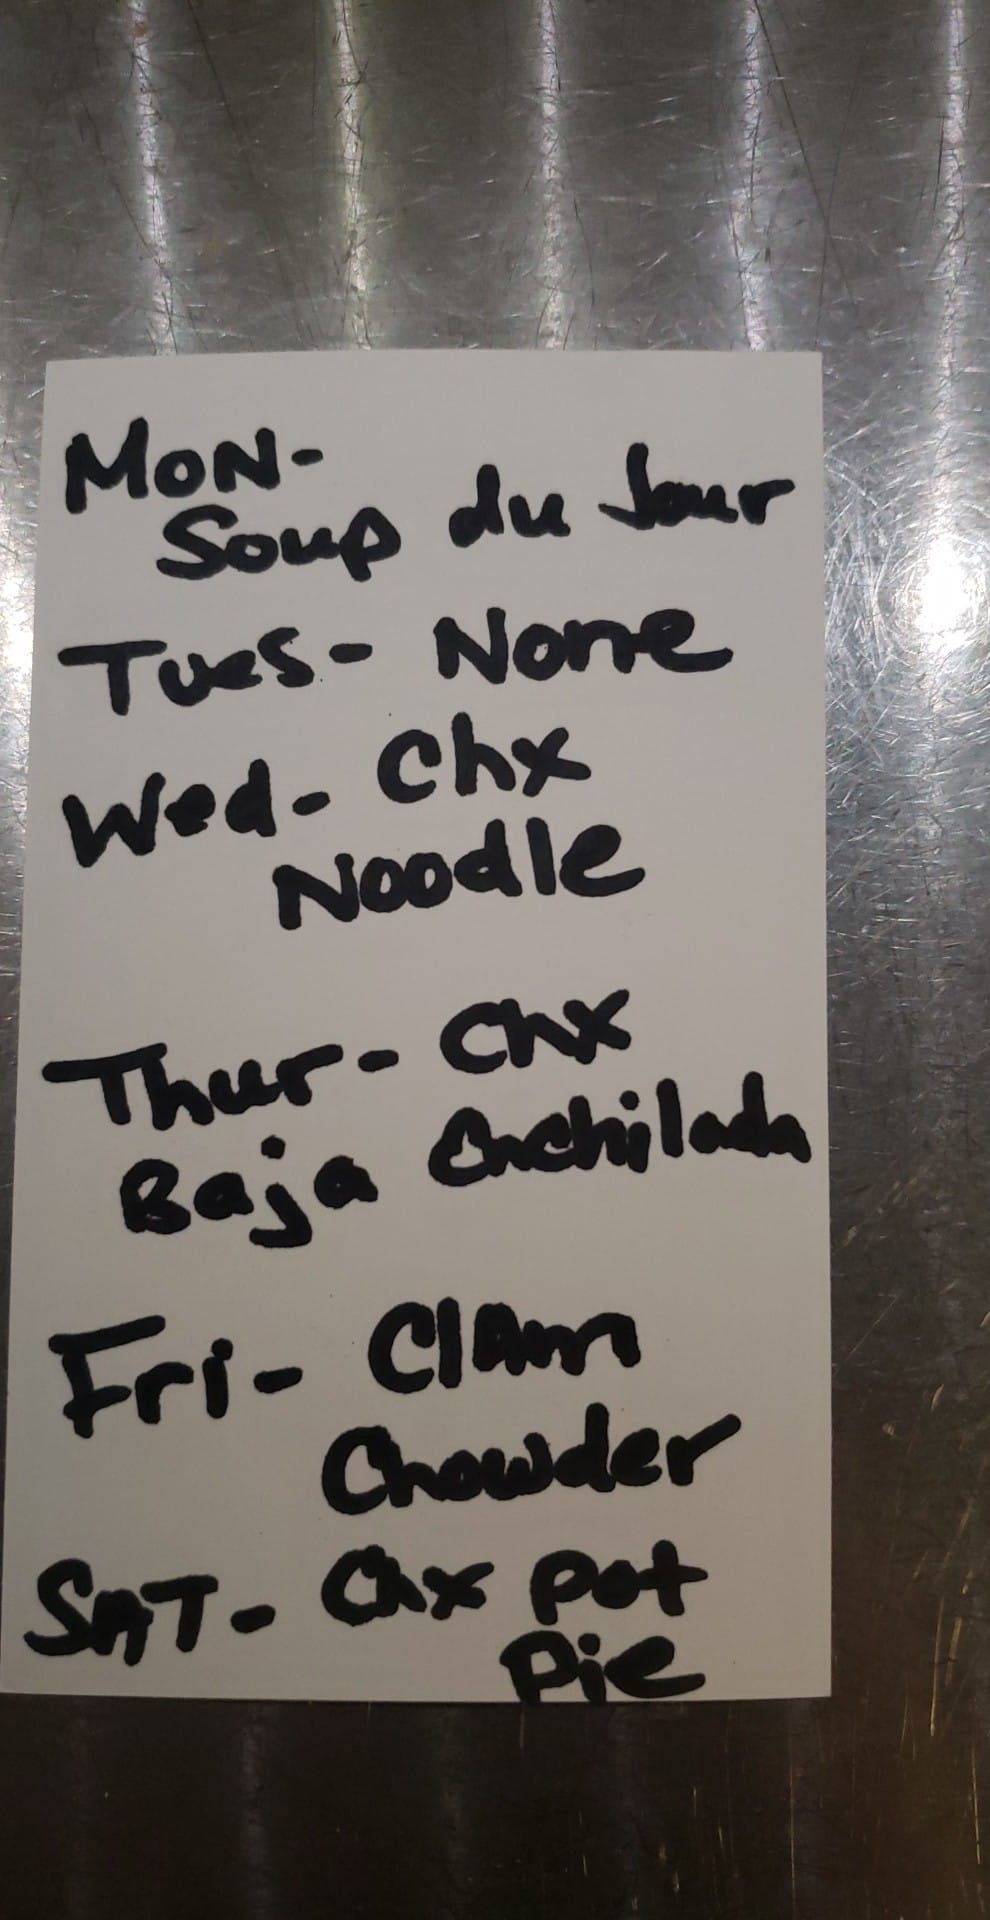 MON-
Soup du Jour
Tues- None
Wed- Chx
Noodle
Thur- Chx
Baja Enchilada
Fri- Clam
Chowder
SAT- Chx pot
pie